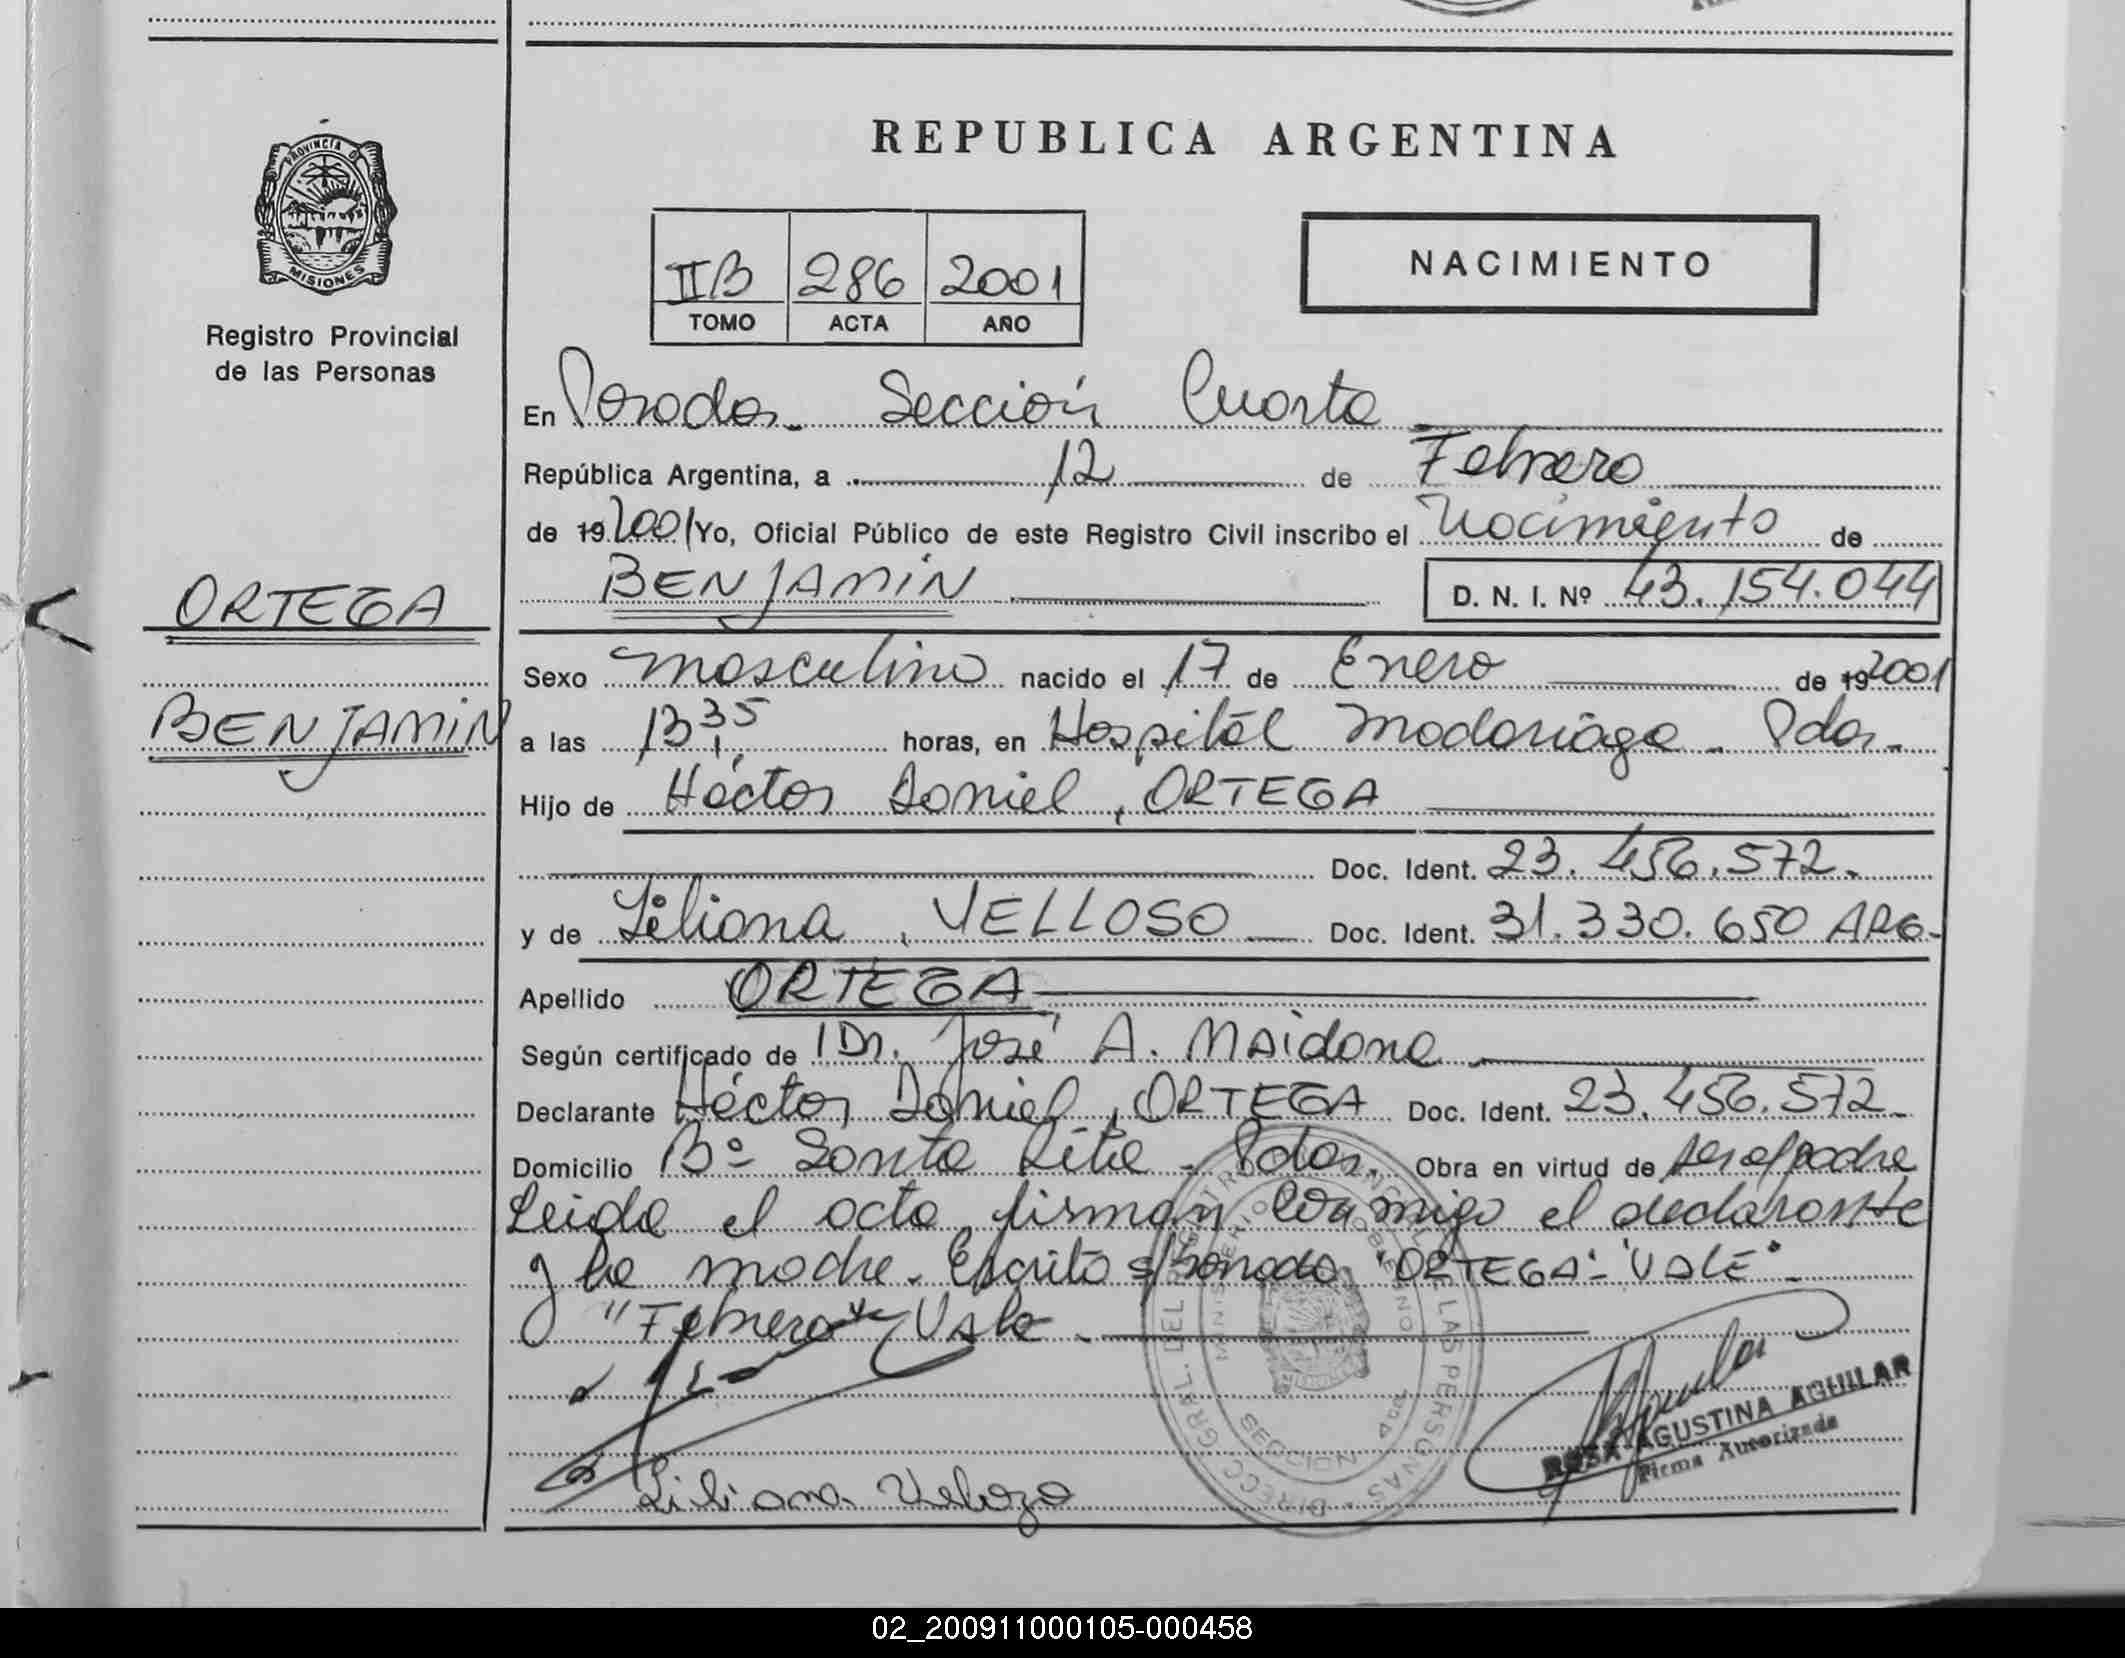 PROVINCIA DE
MISIONES
Registro Provincial
de las Personas
ORTEGA
BENJAMIN
REPUBLICA ARGENTINA
IIB 286 2001
TOMO ACTA AÑO
NACIMIENTO
En Posadas Sección Cuarta
República Argentina, a 12 de Febrero
de 19 2001 Yo, Oficial Público de este Registro Civil inscribo el Nacimiento de
BENJAMIN D. N. I. Nº 43.154.044
Sexo masculino nacido el 17 de Enero de 19 2001
a las 13 35 horas, en Hospital Madariaga - Pdas.
Hijo de Héctor Daniel, ORTEGA
Doc. Ident. 23.456.572.
y de Liliana, VELLOSO Doc. Ident. 31.330.650 ARG.
Apellido ORTEGA
Según certificado de Dr. José A. Maidana
Declarante Héctor Daniel, ORTEGA Doc. Ident. 23.456.572.
Domicilio Bº Santa Rita - Pdas. Obra en virtud de ser el padre
Leida el acta, firman conmigo el declarante
y la madre. Escrito s/borrado "ORTEGA" - "VALE" -
"Febrero" Vale -
Liliana Velozo
DIREC. GRAL. DEL REGISTRO PROVINCIAL DE LAS PERSONAS
MINISTERIO GOBIERNO
SECCION 4ta
ROSA AGUSTINA AGUILAR
Firma Autorizada
02_200911000105-000458